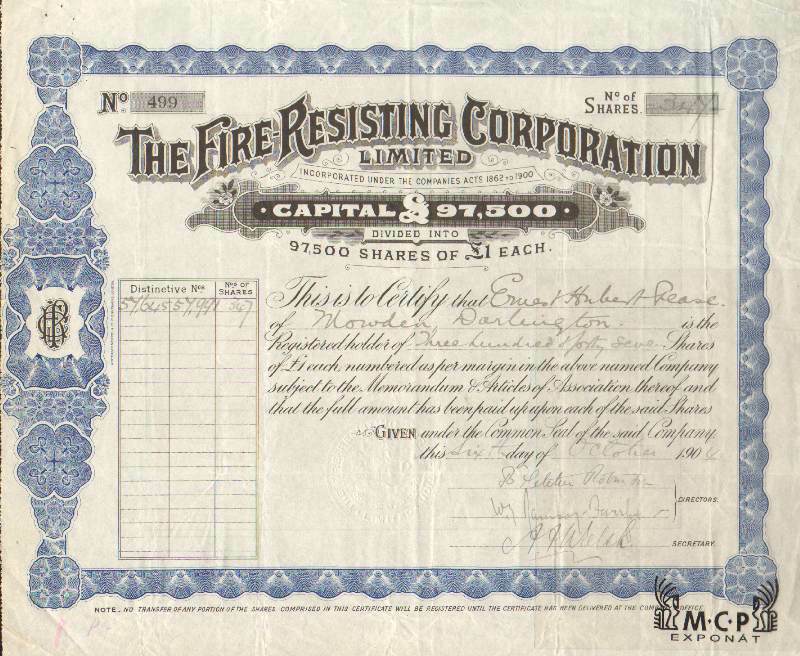 Nº 499
Nº OF SHARES. 347
THE FIRE-RESISTING CORPORATION
LIMITED
INCORPORATED UNDER THE COMPANIES ACTS 1862 TO 1900
CAPITAL £97,500
DIVIDED INTO
97,500 SHARES OF £1 EACH.
Distinctive Nos. Nos. OF SHARES
57645 57991 347
This is to Certify that Ernest Hubert Pease
of Mowden, Darlington. is the
Registered holder of Three hundred & forty seven Shares
of £1 each, numbered as per margin in the above named Company
subject to the Memorandum & Articles of Association thereof and
that the full amount has been paid up upon each of the said Shares
GIVEN under the Common Seal of the said Company
this sixth day of October 190
DIRECTORS.
SECRETARY.
NOTE._NO TRANSFER OF ANY PORTION OF THE SHARES COMPRISED IN THIS CERTIFICATE WILL BE REGISTERED UNTIL THE CERTIFICATE HAS BEEN DELIVERED AT THE COMPANY'S OFFICE
M·C·P
EXPONÁT